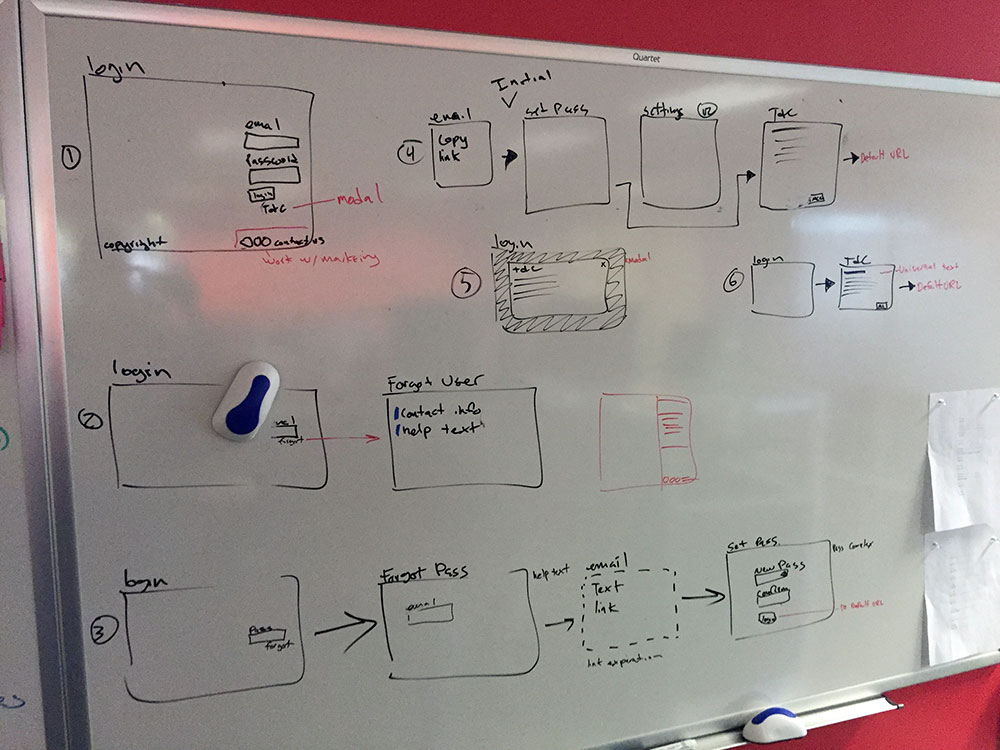 Quartet
login
①
email
Password
login
T&C
modal
copyright
contact us
work w/ marketing
④
email
Copy
link
Initial
set Pass
settings
v2
T&C
Default URL
⑤
login
T&C
x
modal
⑥
login
T&C
Universal text
Default URL
②
login
forgot
Forgot User
contact info
help text
③
login
Pass
forgot
Forgot Pass
email
help text
email
Text
link
Set Pass
New Pass
Confirm
login
to Default URL